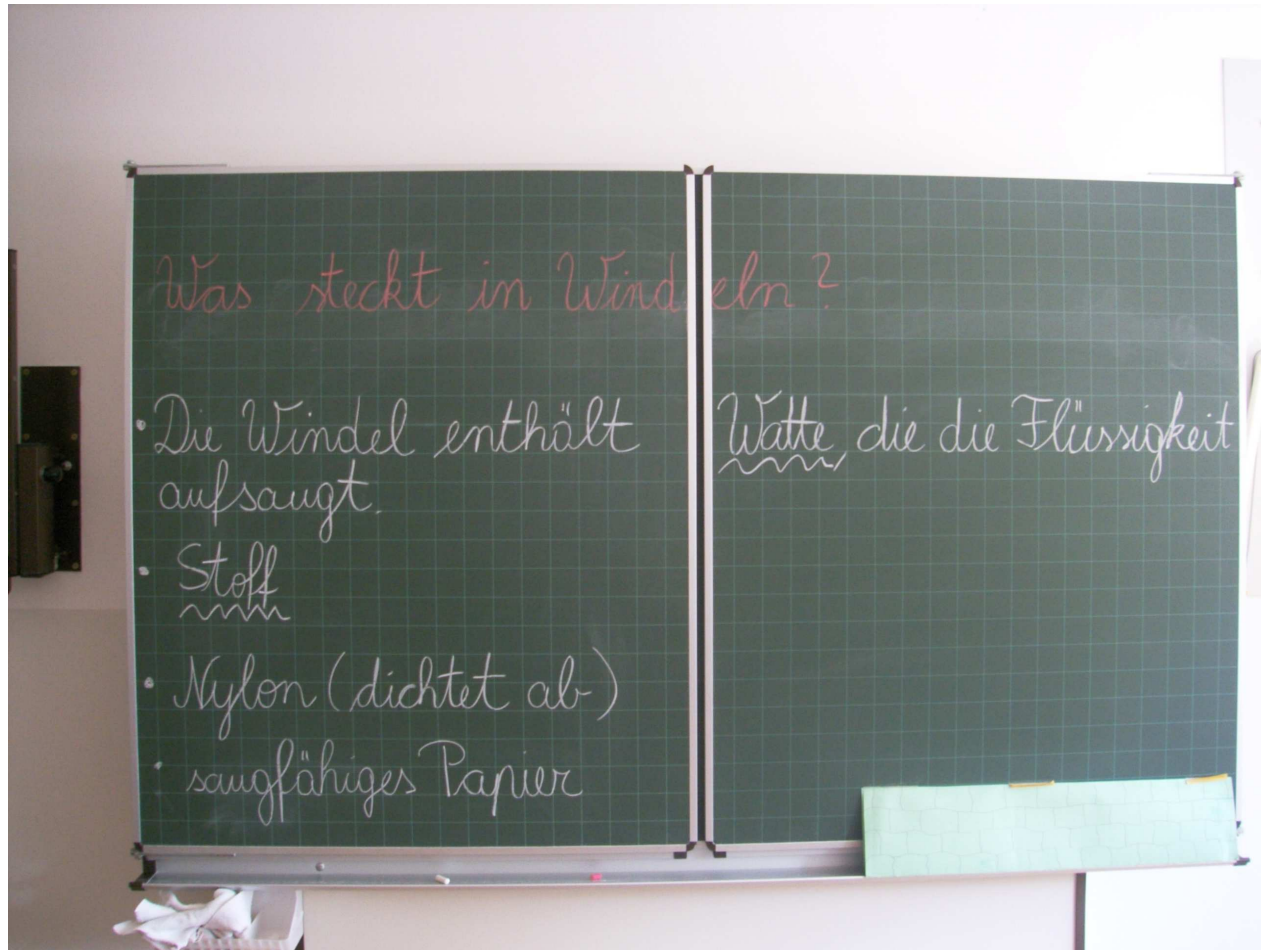 Was steckt in Windeln?
• Die Windel enthält Watte, die die Flüssigkeit
aufsaugt.
• Stoff
• Nylon (dichtet ab)
• saugfähiges Papier